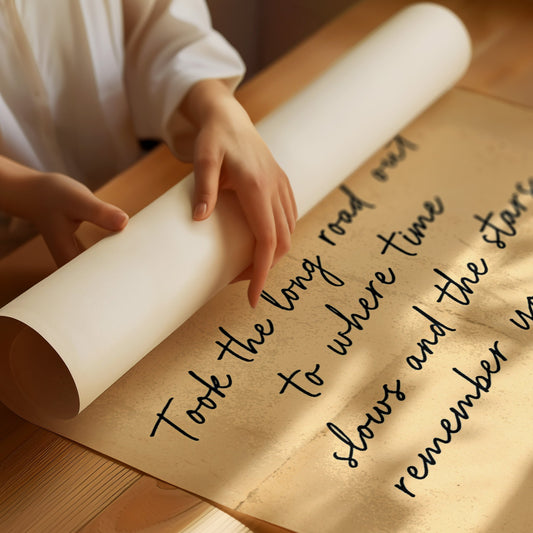 Took the long road out
to where time
slows and the stars
remember